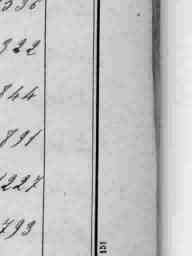 536
322
844
891
1227
793
151